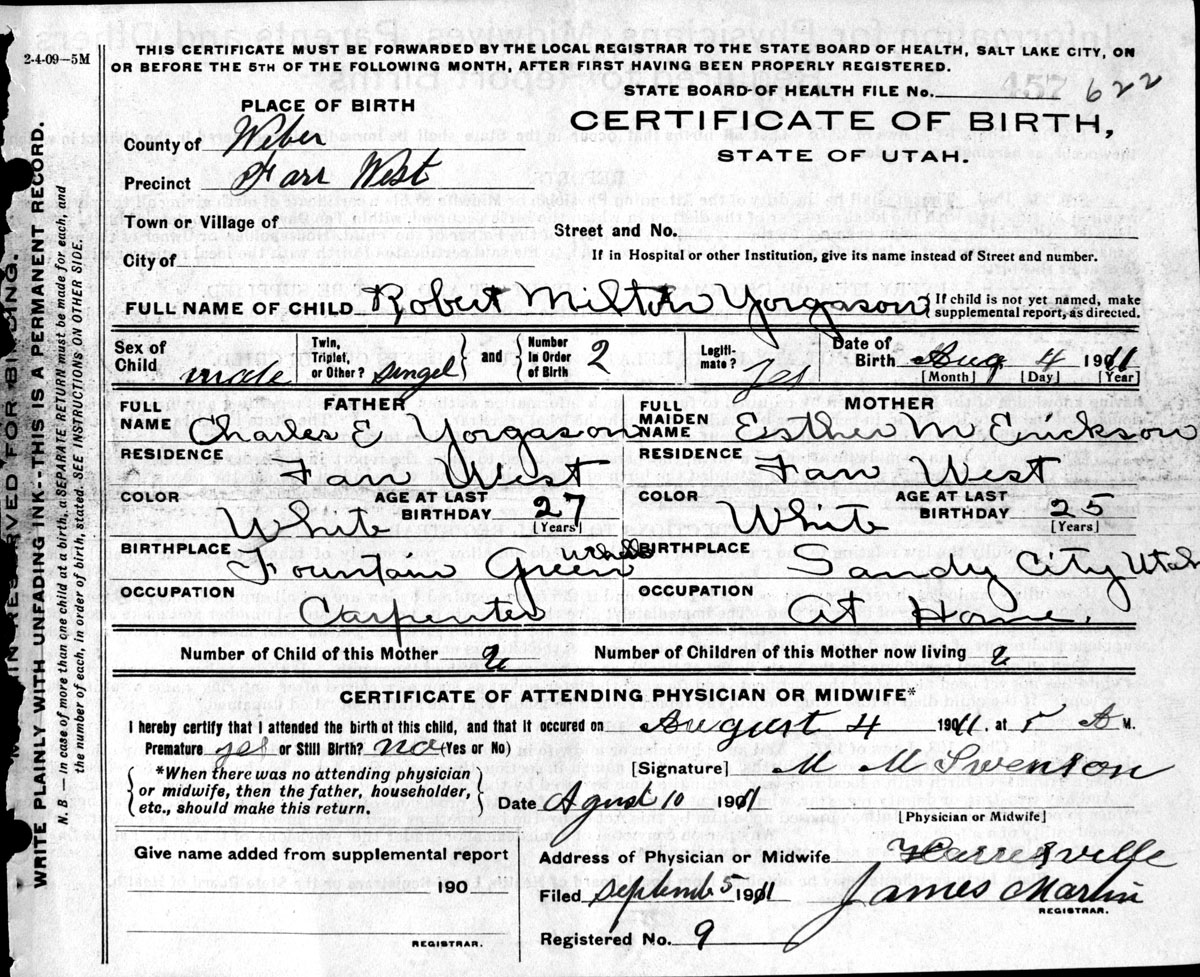 2-4-09—5M
THIS CERTIFICATE MUST BE FORWARDED BY THE LOCAL REGISTRAR TO THE STATE BOARD OF HEALTH, SALT LAKE CITY, ON
OR BEFORE THE 5TH OF THE FOLLOWING MONTH, AFTER FIRST HAVING BEEN PROPERLY REGISTERED.
STATE BOARD OF HEALTH FILE No. 457 622
PLACE OF BIRTH
CERTIFICATE OF BIRTH,
STATE OF UTAH.
County of Weber
Precinct Farr West
Town or Village of
Street and No.
City of
If in Hospital or other Institution, give its name instead of Street and number.
FULL NAME OF CHILD Robert Milton Yorgason { If child is not yet named, make
supplemental report, as directed.
Sex of Child male
Twin, Triplet, or Other? Singel } and { Number in Order of Birth 2
Legiti-mate? yes
Date of Birth Aug 4 1911
[Month] [Day] [Year]
FATHER
FULL NAME Charles E Yorgason
RESIDENCE Farr West
COLOR White
AGE AT LAST BIRTHDAY 27 [Years]
BIRTHPLACE Fountain Green Utah
OCCUPATION Carpenter
MOTHER
FULL MAIDEN NAME Esther M Erickson
RESIDENCE Farr West
COLOR White
AGE AT LAST BIRTHDAY 25 [Years]
BIRTHPLACE Sandy City Utah
OCCUPATION At Home.
Number of Child of this Mother 2 Number of Children of this Mother now living 2
CERTIFICATE OF ATTENDING PHYSICIAN OR MIDWIFE*
I hereby certify that I attended the birth of this child, and that it occured on August 4 1911, at 5 A M.
Premature yes or Still Birth? no (Yes or No)
{ *When there was no attending physician
or midwife, then the father, householder,
etc., should make this return. }
[Signature] M M Swenson
Date Agust 10 1911
[Physician or Midwife]
Give name added from supplemental report
190
REGISTRAR.
Address of Physician or Midwife Harrisville
Filed Septemb 5 1911 James Martin
REGISTRAR.
Registered No. 9
MARGIN RESERVED FOR BINDING.
WRITE PLAINLY WITH UNFADING INK--THIS IS A PERMANENT RECORD.
N. B. — In case of more than one child at birth, a SEPARATE RETURN must be made for each, and
the number of each, in order of birth, stated. SEE INSTRUCTIONS ON OTHER SIDE.